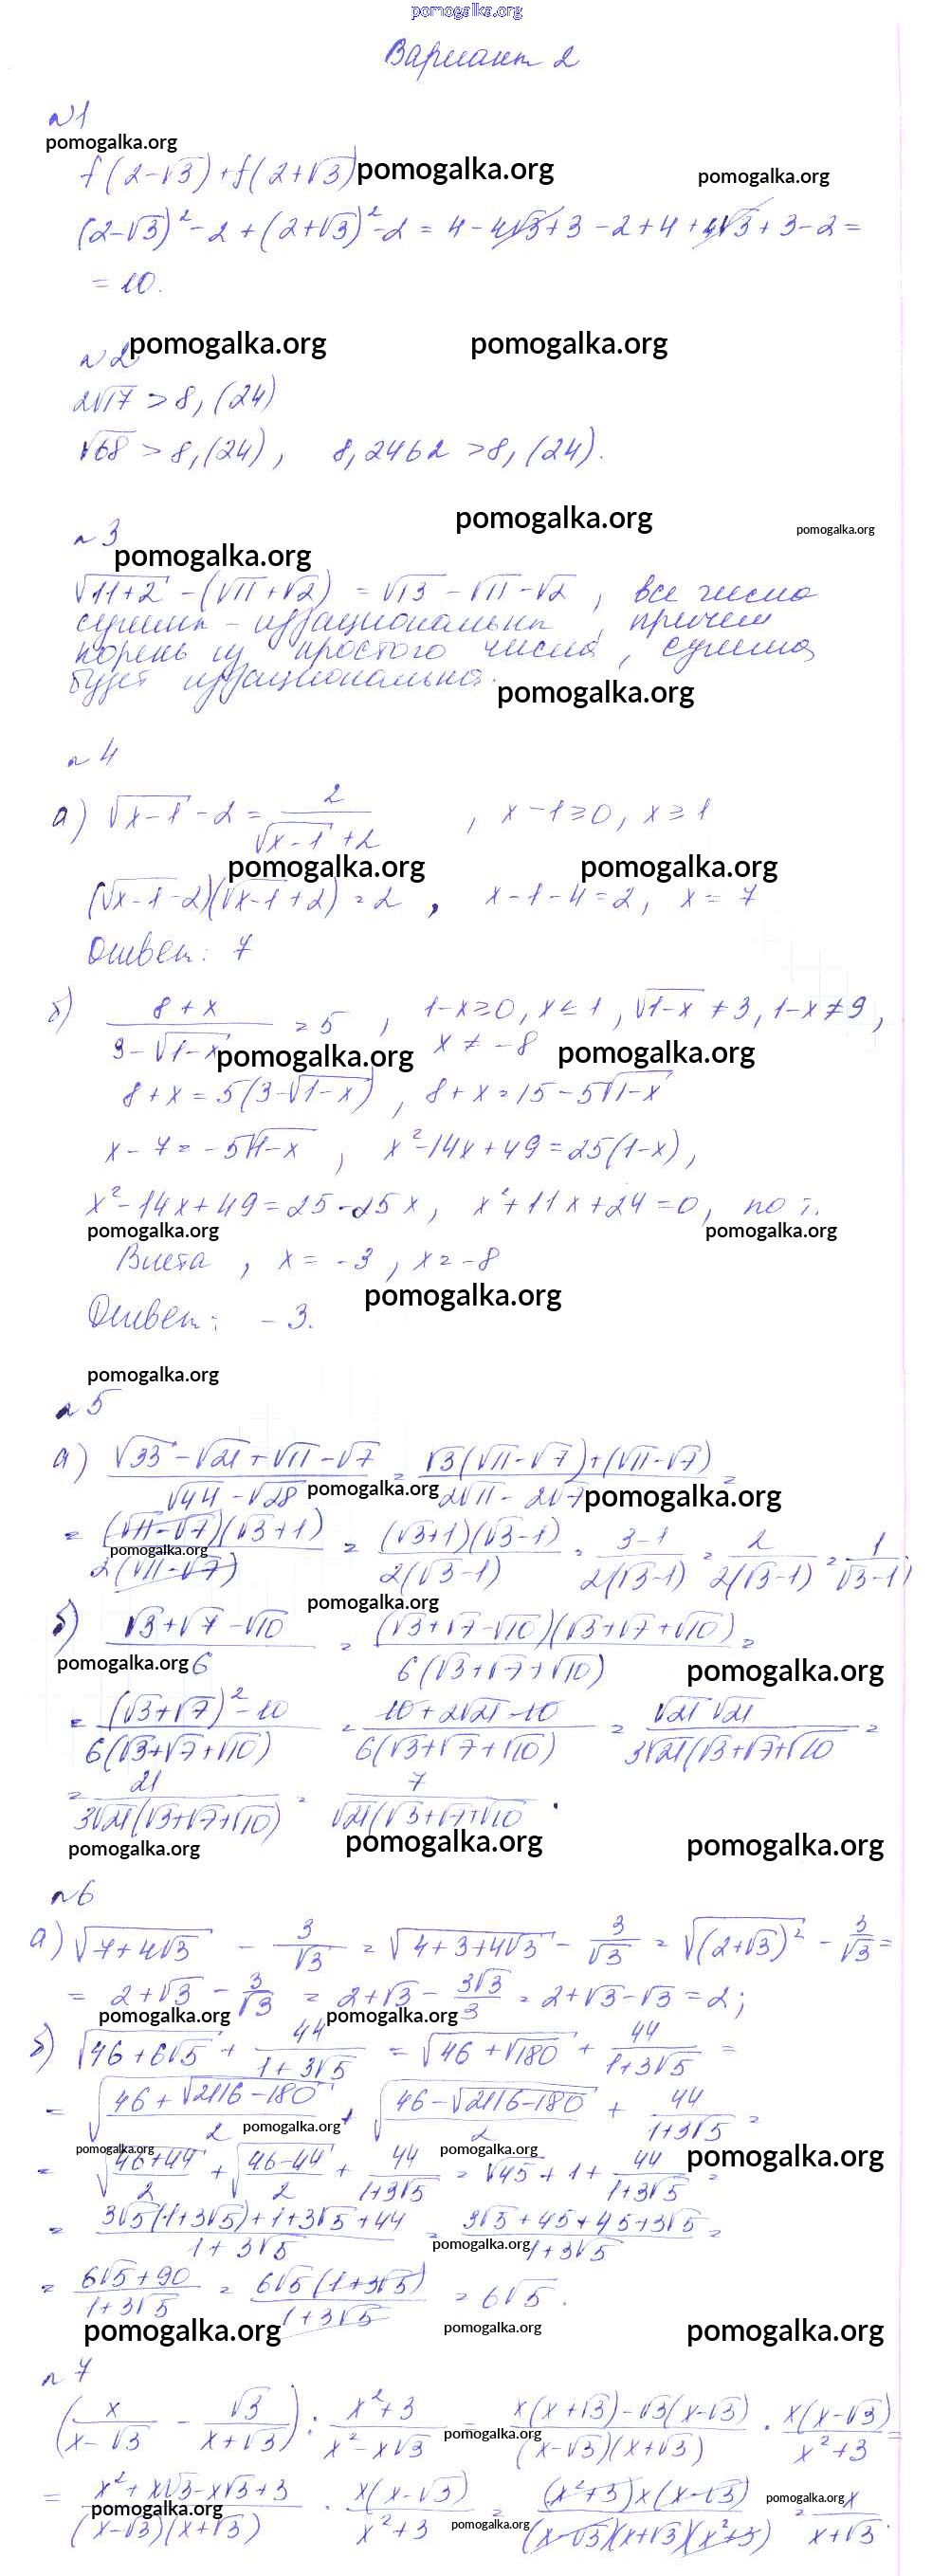 pomogalka.org
Вариант 2
№1
pomogalka.org
f(2-√3)+f(2+√3) pomogalka.org pomogalka.org
(2-√3)²-2+(2+√3)²-2 = 4-4√3+3-2+4+4√3+3-2=
= 10.
№2 pomogalka.org pomogalka.org
2√17 > 8,(24)
√68 > 8,(24), 8,2462 > 8,(24).
pomogalka.org pomogalka.org
№3
pomogalka.org
√11+2 -(√11+√2) = √13-√11-√2, все числа
суммы - иррациональны, причем
корень из простого числа, сумма
будет иррациональна.
pomogalka.org
№4
а) √x-1 - 2 = 2/(√x-1 + 2), x-1≥0, x≥1
pomogalka.org pomogalka.org
(√x-1 -2)(√x-1 +2) = 2, x-1-4=2, x=7
Ответ: 7
б) (8+x)/(3-√1-x) = 5, 1-x≥0, x≤1, √1-x ≠3, 1-x≠9,
pomogalka.org x≠-8 pomogalka.org
8+x = 5(3-√1-x), 8+x=15-5√1-x
x-7=-5√1-x, x²-14x+49=25(1-x),
x²-14x+49=25-25x, x²+11x+24=0, по т.
pomogalka.org pomogalka.org
Виета, x=-3, x=-8
pomogalka.org
Ответ: -3.
pomogalka.org
№5
а) (√33-√21+√11-√7)/(√44-√28) = (√3(√11-√7)+(√11-√7))/(2√11-2√7) =
pomogalka.org pomogalka.org
= (√11-√7)(√3+1)/(2(√11-√7)) = (√3+1)(√3-1)/(2(√3-1)) = (3-1)/(2(√3-1)) = 2/(2(√3-1)) = 1/(√3-1);
pomogalka.org
pomogalka.org
б) (√3+√7-√10)/6 = (√3+√7-√10)(√3+√7+√10)/(6(√3+√7+√10)) =
pomogalka.org pomogalka.org
= ((√3+√7)²-10)/(6(√3+√7+√10)) = (10+2√21-10)/(6(√3+√7+√10)) = √21 √21/(3√21(√3+√7+√10 =
= 21/(3√21(√3+√7+√10)) = 7/(√21(√3+√7+√10.
pomogalka.org pomogalka.org pomogalka.org
№6
а) √7+4√3 - 3/√3 = √4+3+4√3 - 3/√3 = √(2+√3)² - 3/√3 =
= 2+√3 - 3/√3 = 2+√3 - 3√3/3 = 2+√3-√3 = 2;
pomogalka.org pomogalka.org
б) √46+6√5 + 44/(1+3√5) = √46+√180 + 44/(1+3√5) =
= √(46+√2116-180)/2 + √(46-√2116-180)/2 + 44/(1+3√5) =
pomogalka.org
pomogalka.org pomogalka.org pomogalka.org
= √(46+44)/2 + √(46-44)/2 + 44/(1+3√5) = √45+1+44/(1+3√5) =
= (3√5(1+3√5)+1+3√5+44)/(1+3√5) = (3√5+45+45+3√5)/(1+3√5) =
pomogalka.org
= (6√5+90)/(1+3√5) = 6√5(1+3√5)/(1+3√5) = 6√5.
pomogalka.org pomogalka.org pomogalka.org
№7
(x/(x-√3) - √3/(x+√3)) : (x²+3)/(x²-x√3) = (x(x+√3)-√3(x-√3))/((x-√3)(x+√3)) · x(x-√3)/(x²+3) =
pomogalka.org
= (x²+x√3-x√3+3)/((x-√3)(x+√3)) · x(x-√3)/(x²+3) = (x²+3)x(x-√3)/((x-√3)(x+√3)(x²+3)) = x/(x+√3).
pomogalka.org pomogalka.org pomogalka.org